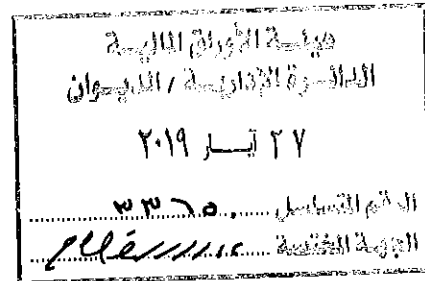 هيئة الأوراق المالية
الدائرة الإدارية / الديوان
٢٧ آيار ٢٠١٩
الرقم التسلسل ٣٣٦٥
الجهة المختصة